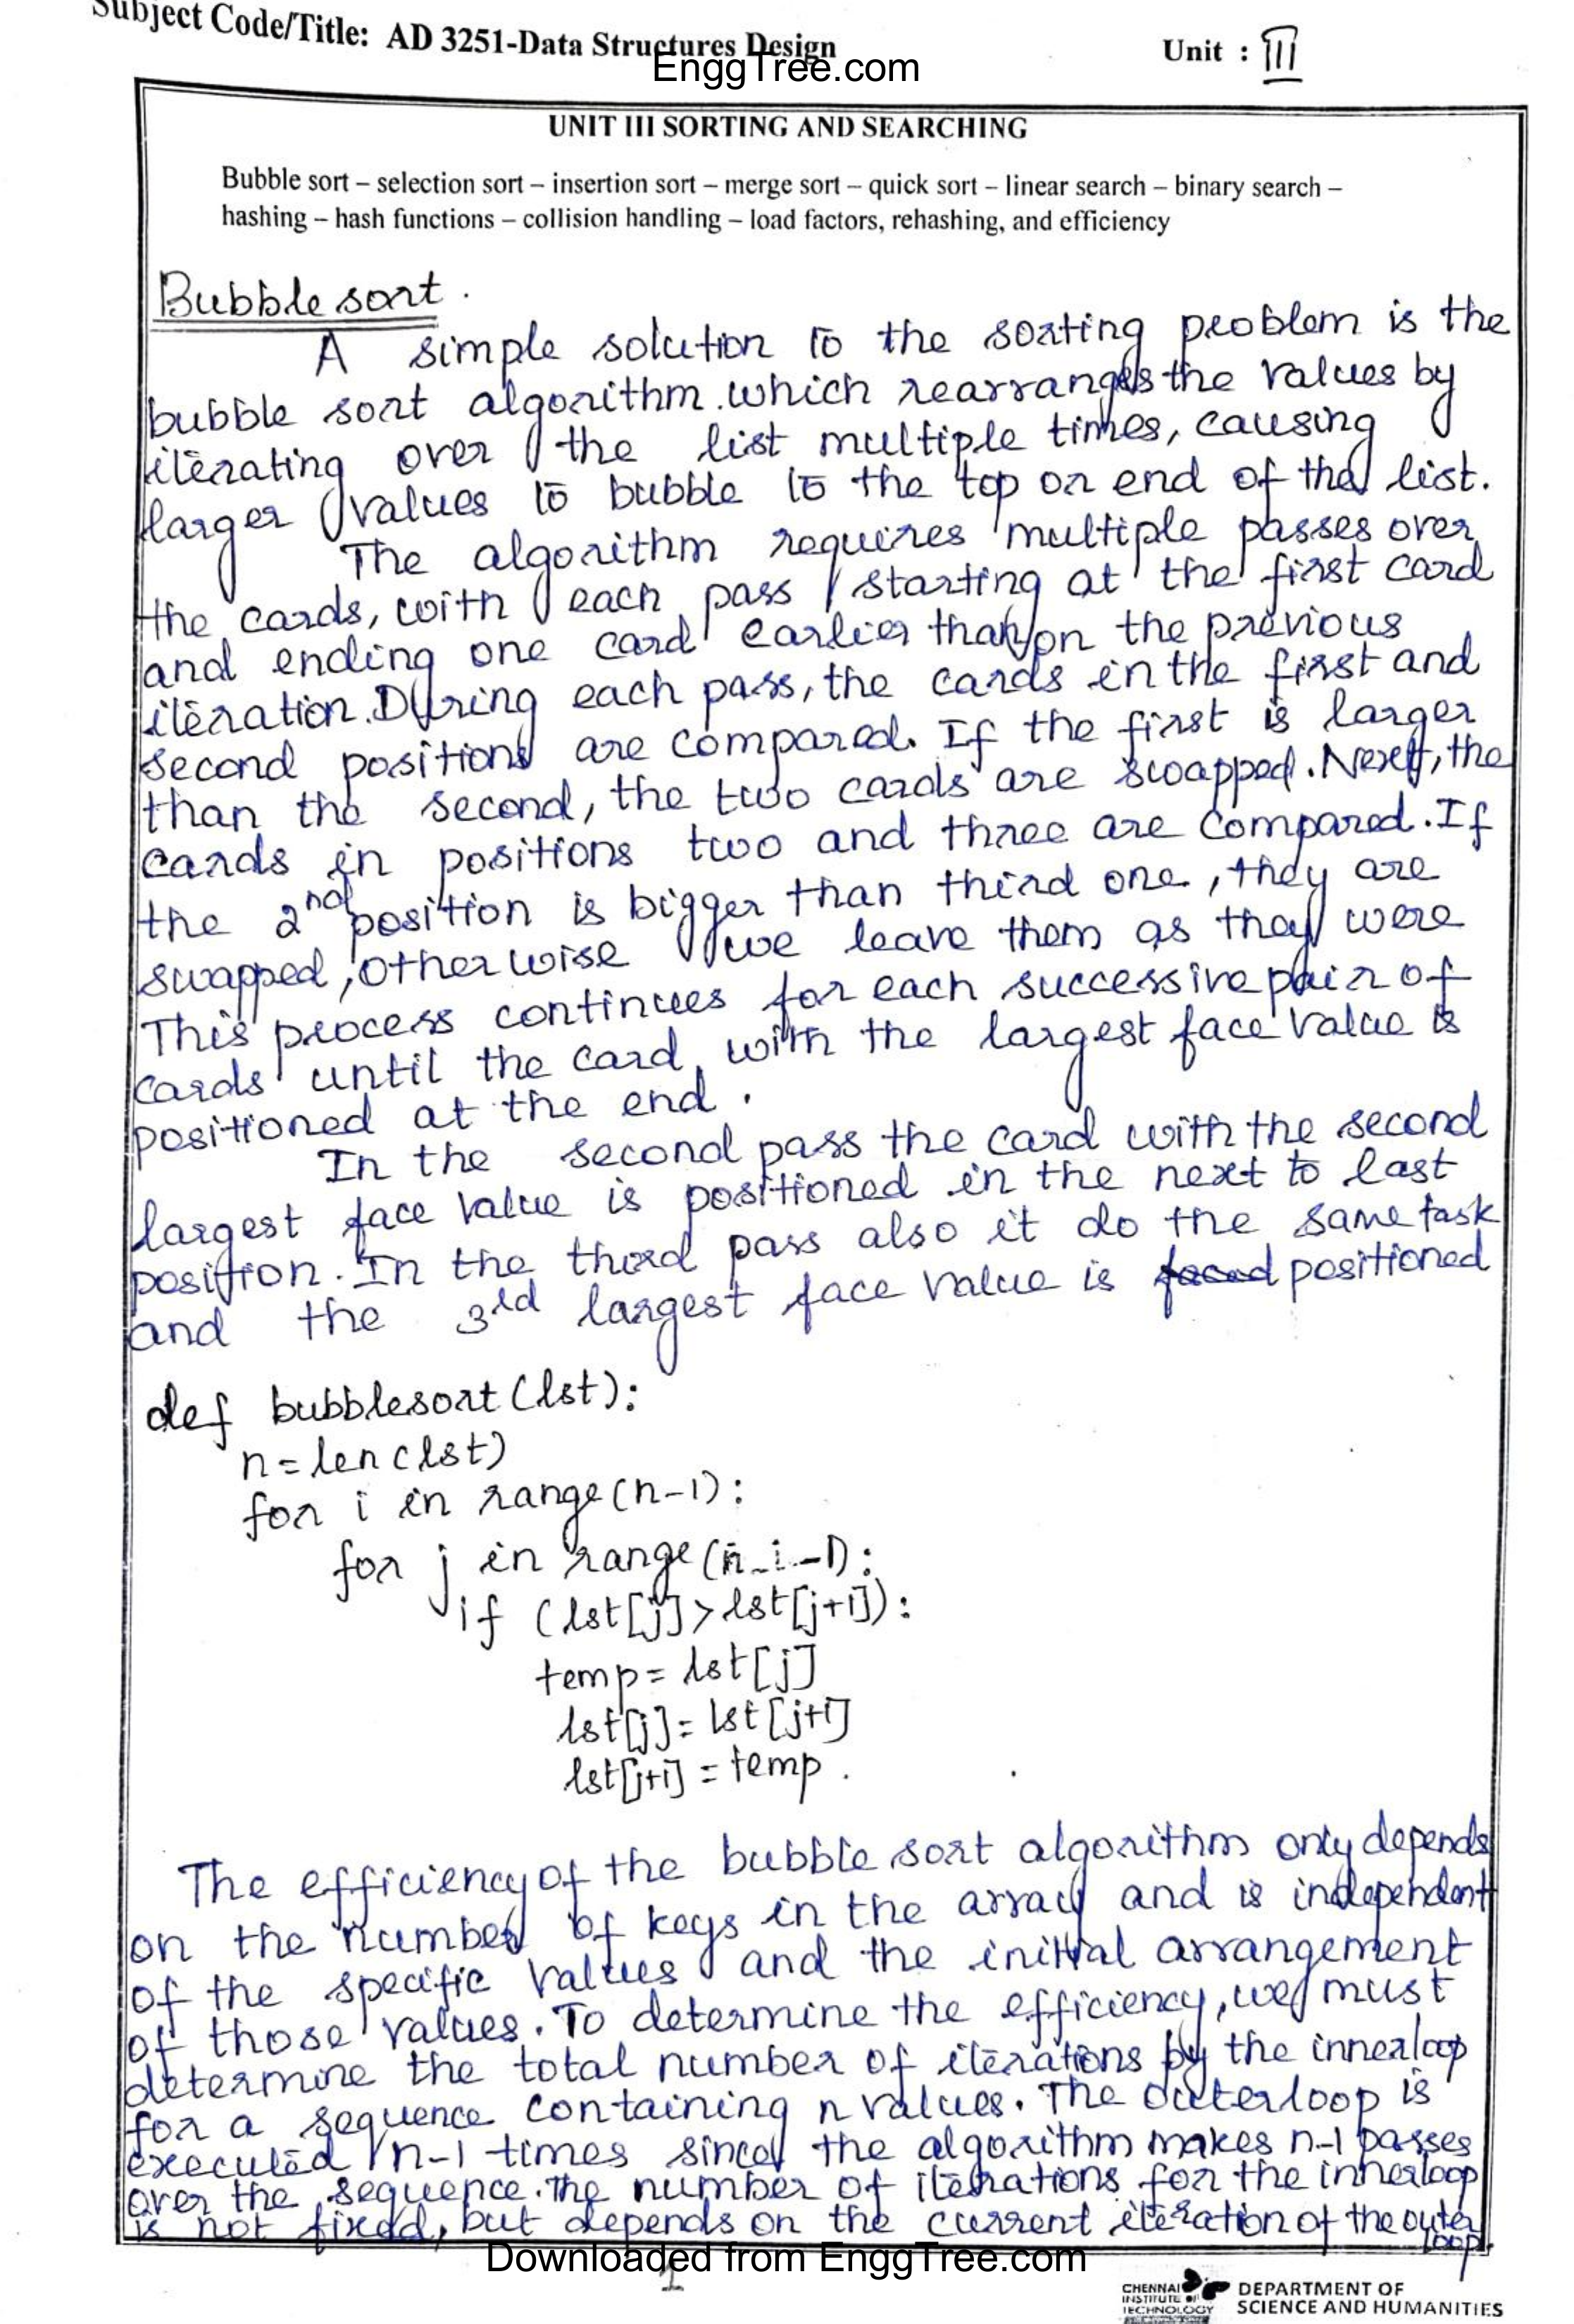 Subject Code/Title: AD 3251-Data Structures Design
Unit : III
EnggTree.com
UNIT III SORTING AND SEARCHING
Bubble sort – selection sort – insertion sort – merge sort – quick sort – linear search – binary search –
hashing – hash functions – collision handling – load factors, rehashing, and efficiency
Bubble sort.
A simple solution to the sorting problem is the
bubble sort algorithm. which rearranges the values by
iterating over the list multiple times, causing
larger values to bubble to the top or end of the list.
The algorithm requires multiple passes over
the cards, with each pass starting at the first card
and ending one card earlier than on the previous
iteration. During each pass, the cards in the first and
second positions are compared. If the first is larger
than the second, the two cards are swapped. Next, the
cards in positions two and three are compared. If
the 2nd position is bigger than third one, they are
swapped, otherwise we leave them as they were
This process continues for each successive pair of
cards until the card with the largest face value is
positioned at the end.
In the second pass the card with the second
largest face value is positioned in the next to last
position. In the third pass also it do the same task
and the 3rd largest face value is positioned
def bubblesort(lst):
n=len(lst)
for i in range(n-1):
for j in range(n-i-1):
if (lst[j]>lst[j+1]):
temp=lst[j]
lst[j]=lst[j+1]
lst[j+1]=temp.
The efficiency of the bubble sort algorithm only depends
on the number of keys in the array and is independent
of the specific values and the initial arrangement
of those values. To determine the efficiency, we must
determine the total number of iterations by the innerloop
for a sequence containing n values. The outerloop is
executed n-1 times since the algorithm makes n-1 passes
over the sequence. The number of iterations for the innerloop
is not fixed, but depends on the current iteration of the outer
loop.
Downloaded from EnggTree.com
1
CHENNAI
INSTITUTE OF
TECHNOLOGY
DEPARTMENT OF
SCIENCE AND HUMANITIES